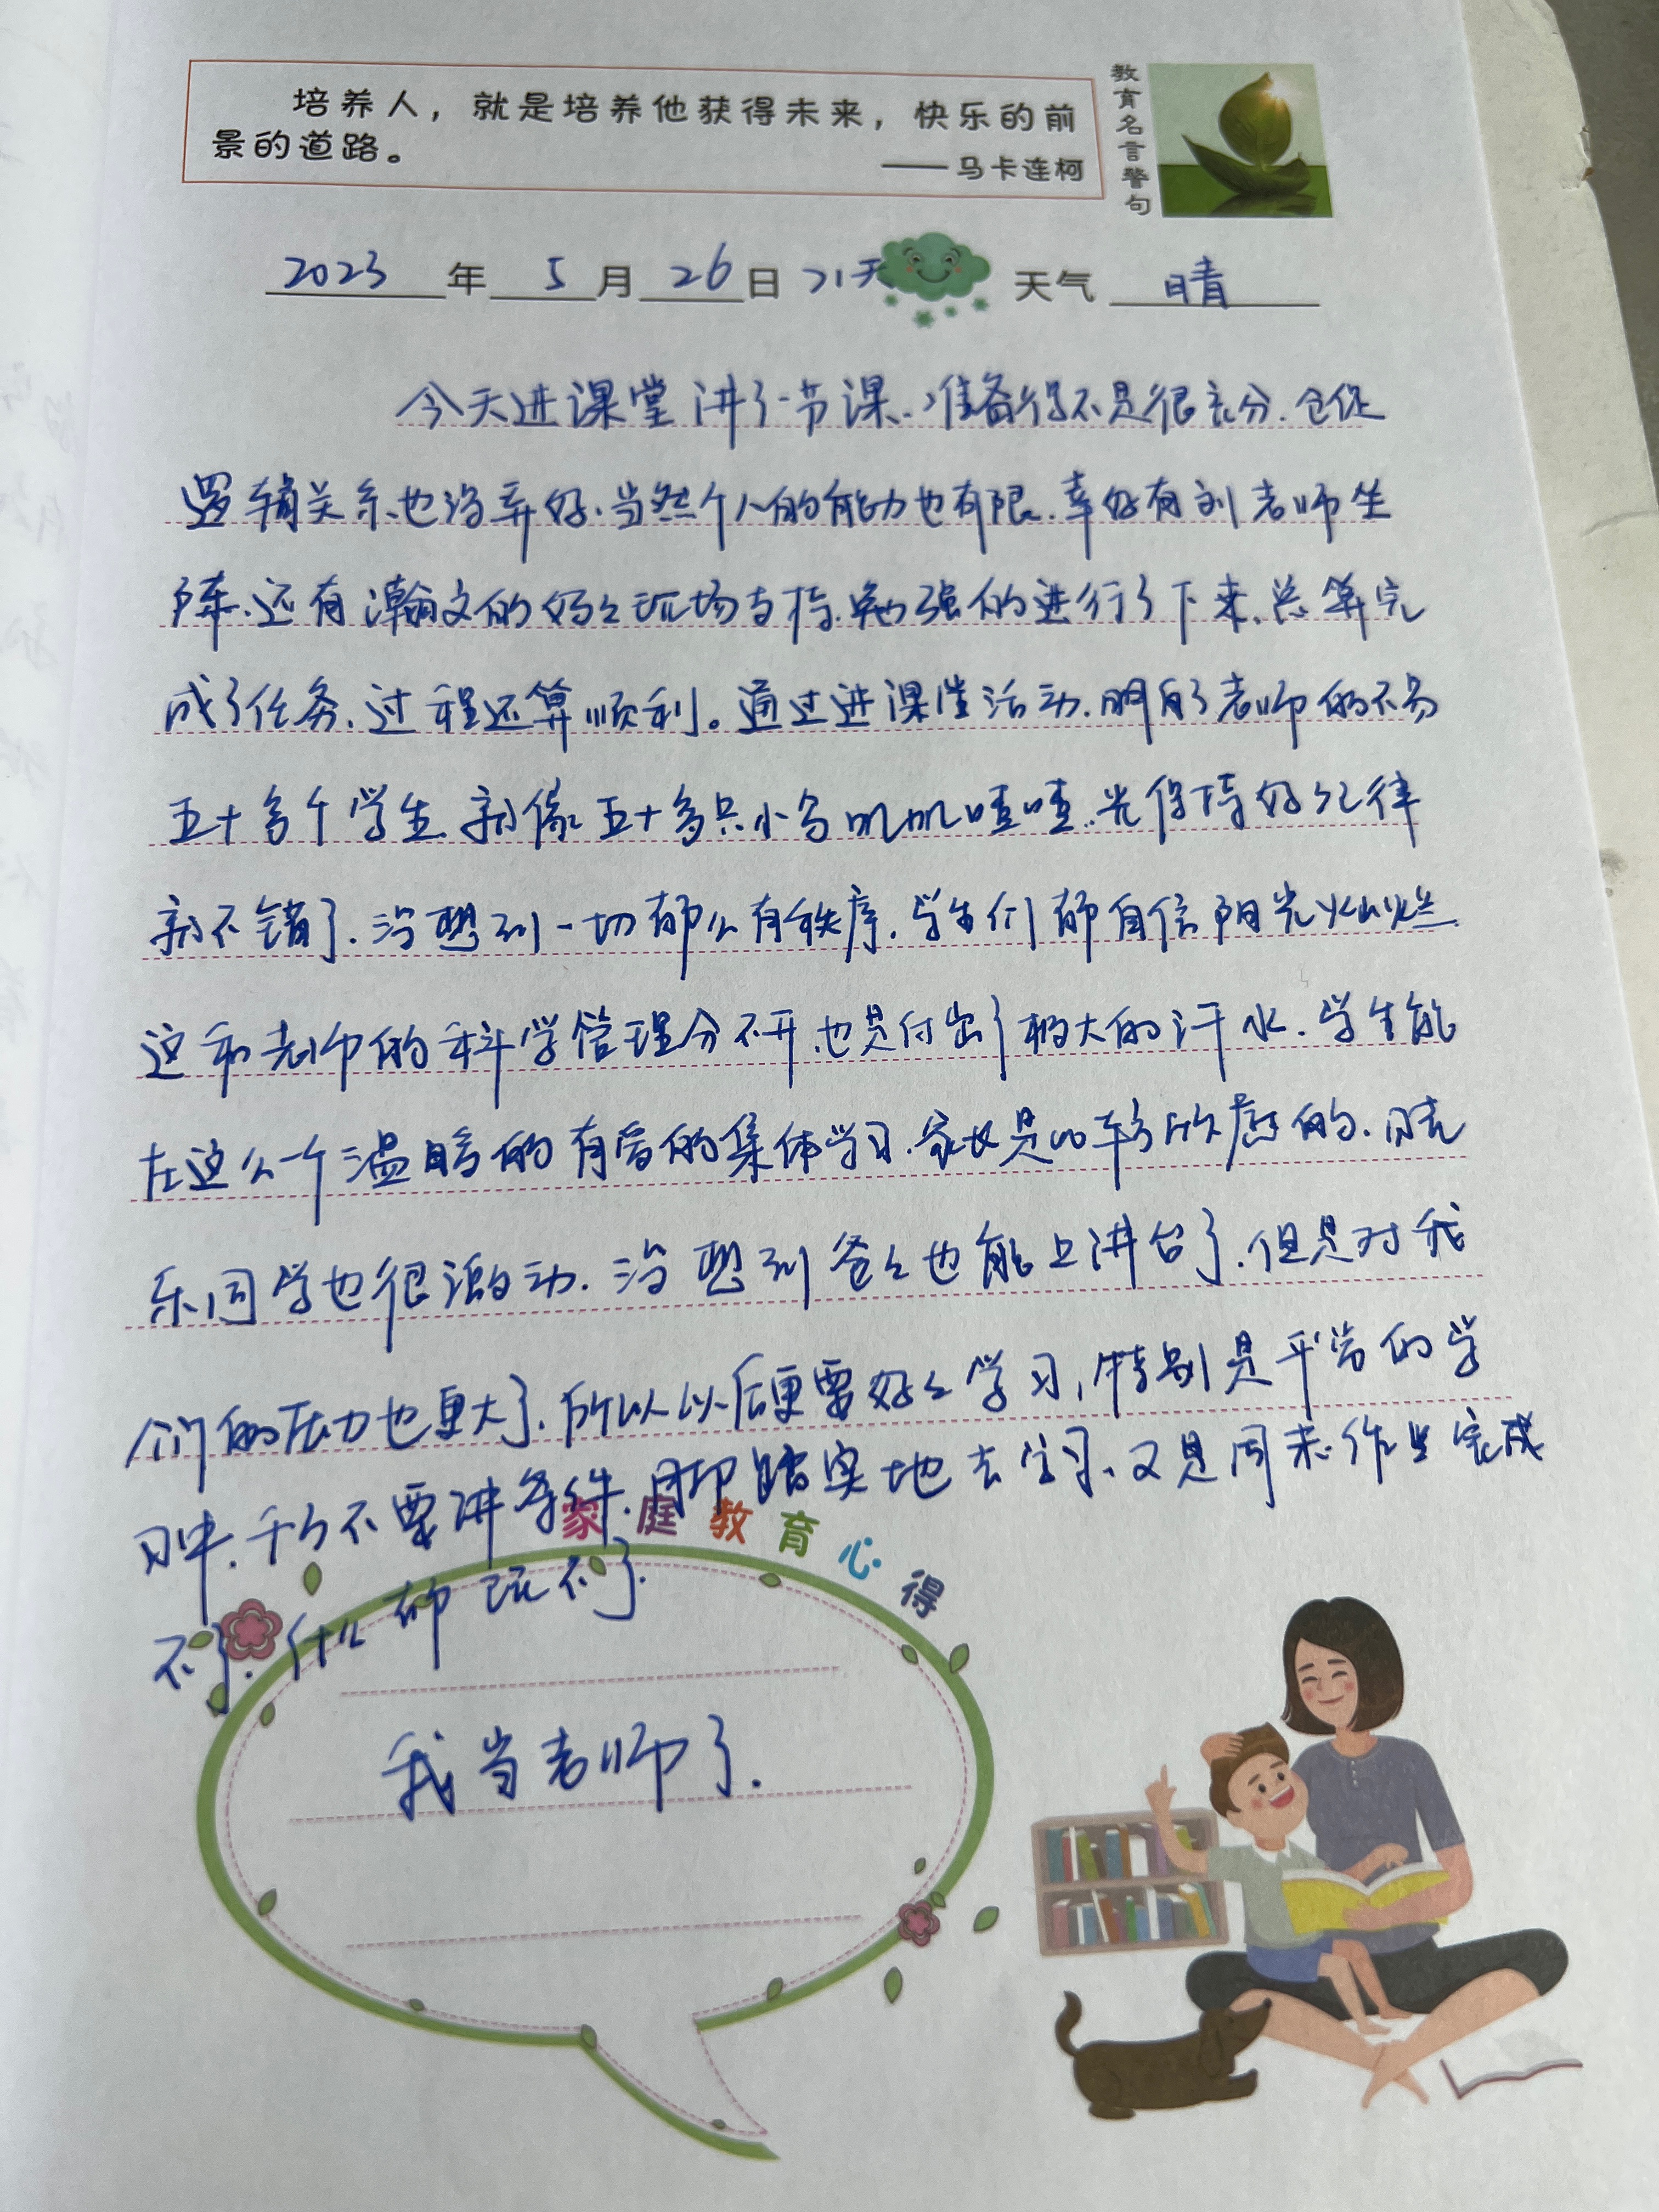 培养人，就是培养他获得未来，快乐的前
景的道路。
——马卡连柯
教育名言警句
2023年5月26日 21天 天气 晴
今天进课堂讲了一节课.准备得不是很充分.仓促
逻辑关系也没弄好.当然个人的能力也有限.幸好有刘老师坐
阵.还有瀚文的妈妈现场支持.勉强的进行了下来.总算完
成了任务.过程还算顺利。通过进课堂活动.明白了老师的不易
五十多个学生.就像五十多只小鸟叽叽喳喳.光保持好纪律
就不错了.没想到一切都么有秩序.学生们都自信阳光灿烂.
这和老师的科学管理分不开.也是付出了极大的汗水.学生能
在这么一个温暖的有爱的集体学习.家长是比较欣慰的.
乐同学也很激动.没想到爸爸也能上讲台了.但是对我
们的压力也更大了.所以以后更要好好学习,特别是平常的学
习中.千万不要讲条件.脚踏实地去学习.又是周末.作业完成
不了.什么都玩不了.
家庭教育心得
我当老师了.